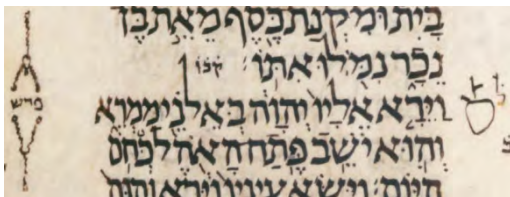 בָּיִת וּמִקְנַת כֶּסֶף מֵאֵת בֶּן
נֵכָר נִמֹּלוּ אִתּוֹ׃ קכו
פרש
וַיֵּרָא אֵלָיו יְהוָה בְּאֵלֹנֵי מַמְרֵא
וְהוּא יֹשֵׁב פֶּתַח הָאֹהֶל כְּחֹם
הַיּוֹם׃ וַיִּשָּׂא עֵינָיו וַיַּרְא וְהִנֵּה